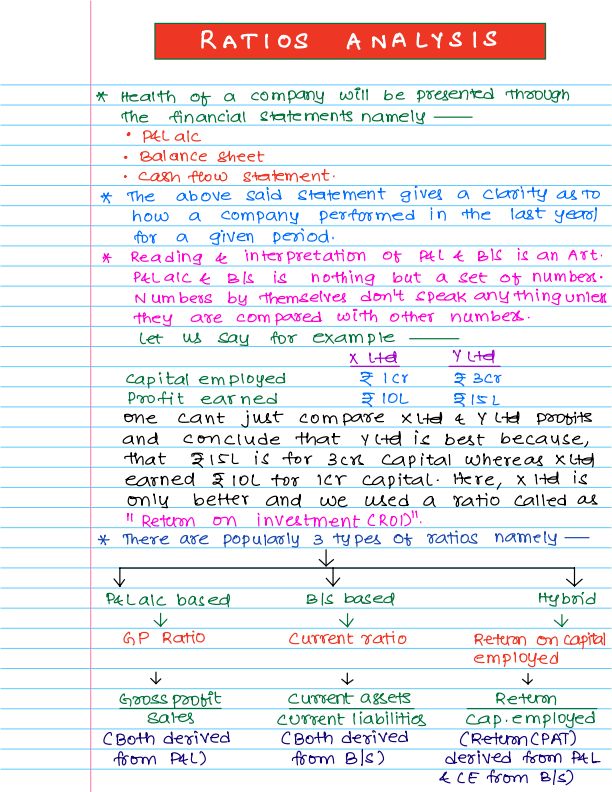 RATIOS ANALYSIS
* Health of a company will be presented through
the financial statements namely —
• P&L a/c
• Balance sheet
• Cash flow statement.
* The above said statement gives a clarity as to
how a company performed in the last year/
for a given period.
* Reading & interpretation of P&L & B/S is an Art.
P&L a/c & B/S is nothing but a set of numbers.
Numbers by themselves don't speak anything unless
they are compared with other numbers.
Let us say for example —
X Ltd Y Ltd
Capital employed ₹ 1Cr ₹ 3Cr
Profit earned ₹ 10L ₹ 15L
one cant just compare X Ltd & Y Ltd profits
and conclude that Y Ltd is best because,
that ₹ 15L is for 3crs capital whereas X Ltd
earned ₹ 10L for 1Cr capital. Here, X ltd is
only better and we used a ratio called as
" Return on investment (ROI)".
* There are popularly 3 types of ratios namely —
P&L a/c based B/S based Hybrid
GP Ratio Current ratio Return on capital
employed
Gross profit Current assets Return
Sales Current liabilities Cap. employed
(Both derived (Both derived (Return (PAT)
from P&L) from B/S) derived from P&L
& CE from B/S)